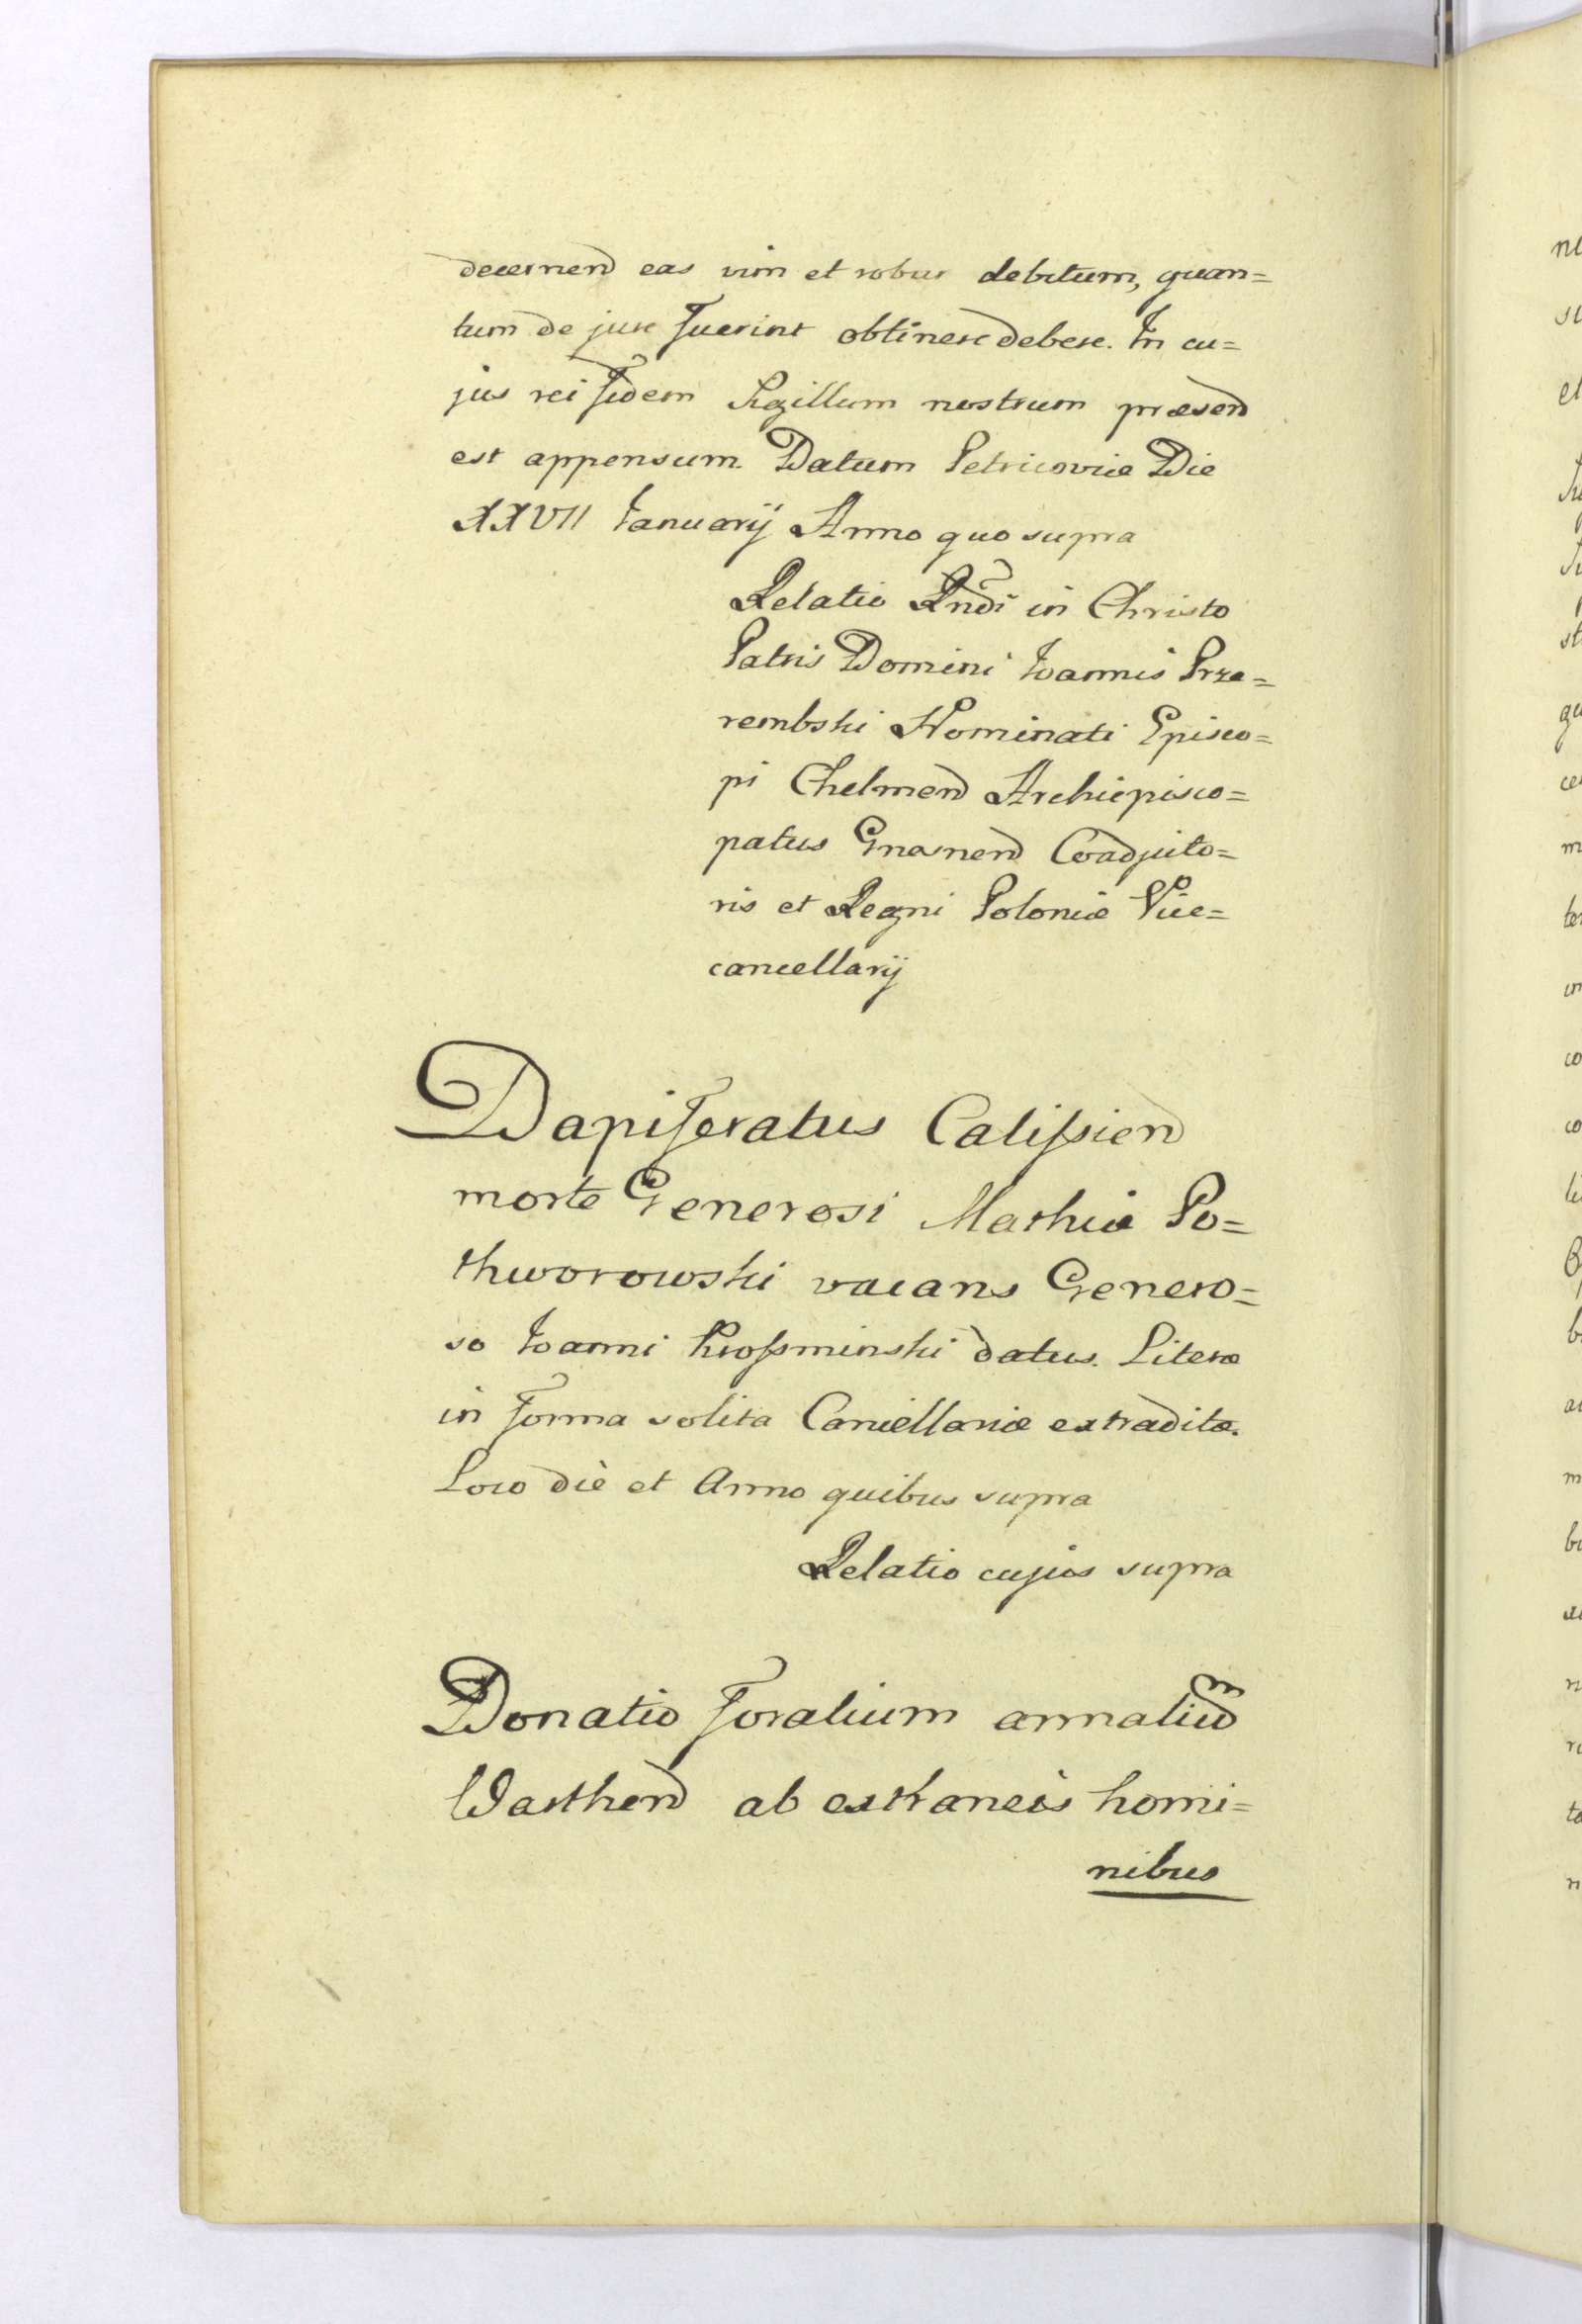 decernen eas vim et robur debitum, quan=
tum de jure fuerint obtinere debere. In cu=
jus rei fidem Sigillum nostrum præsen
est appensum. Datum Petricoviæ Die
XXVII Ianuarij Anno quo supra
Relatio Rndi in Christo
Patris Domini Ioannis Prze=
rembski Nominati Episco=
pi Chelmen Archiepisco=
patus Gnesnen Coadjuto=
ris et Regni Poloniæ Vice=
cancellarij
Dapiferatus Calissien
morte Generosi Mathiæ Po=
thworowski vacans Genero=
so Ioanni datus. Literæ
in forma solita Cancellariæ extraditæ.
Loco die et Anno quibus supra
Relatio cujus supra
Donatio foralium annalium
Warthen ab extraneis homi=
nibus